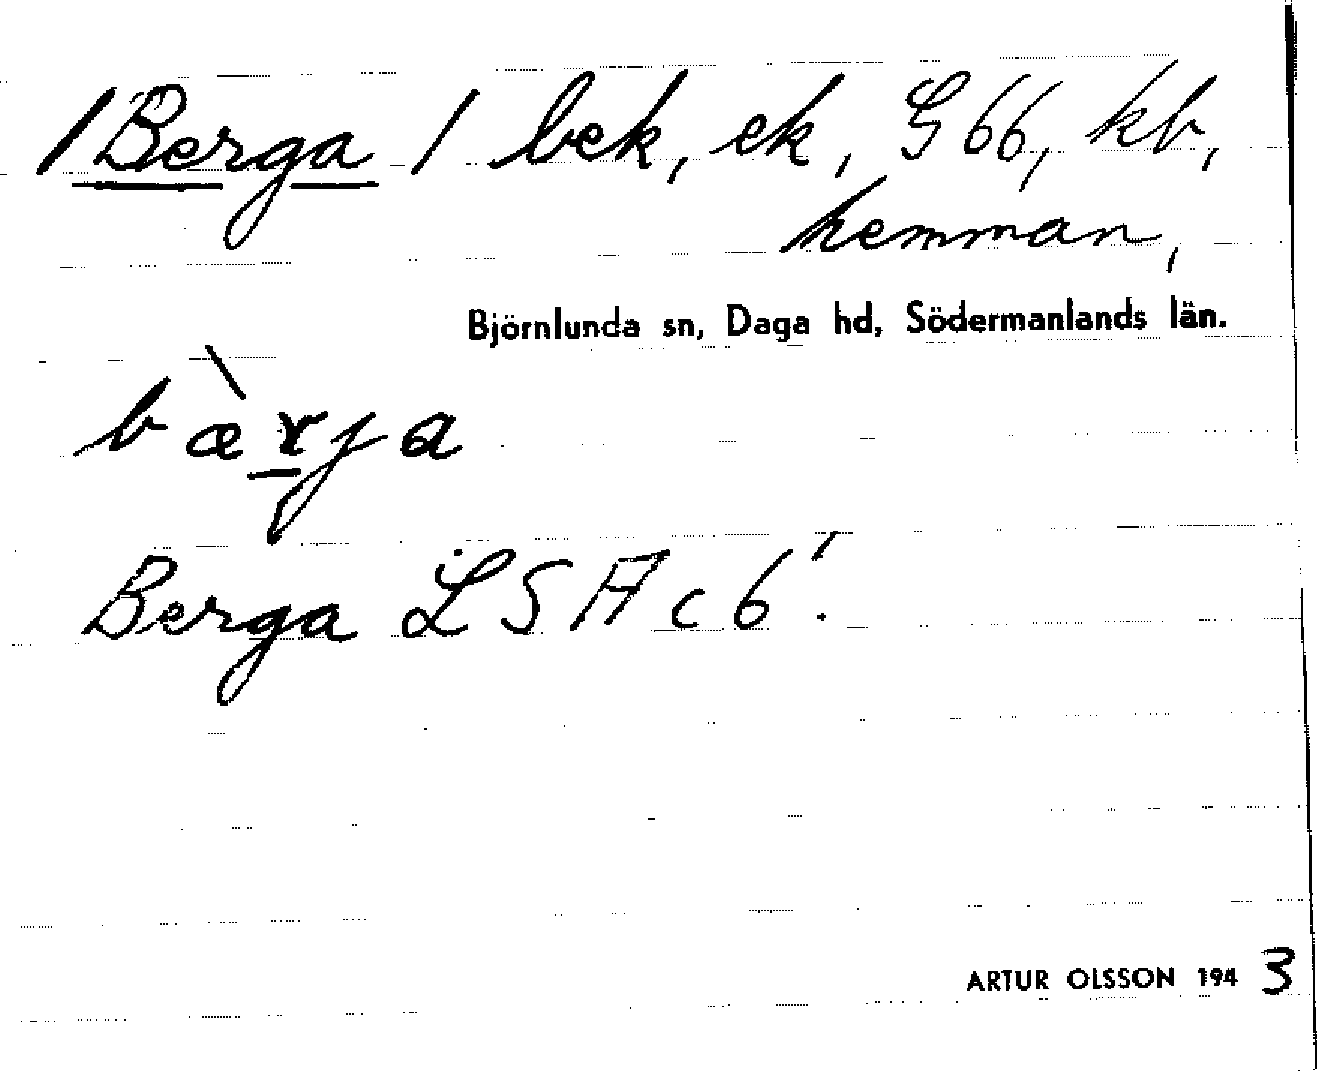 /Berga / bek, ek, G 66, kb,
hemman,
Björnlunda sn, Daga hd, Södermanlands län.
bæ̀r̲ja
Berga LSA c 6!
ARTUR OLSSON 1943